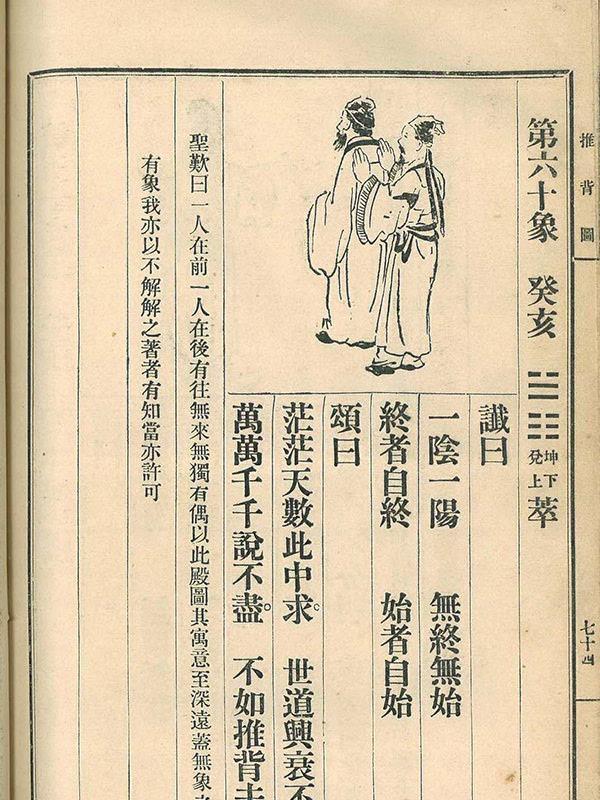 推背圖
七十四
第六十象 癸亥 坤下兌上 萃
讖曰
一陰一陽 無終無始
終者自終 始者自始
頌曰
茫茫天數此中求。 世道興衰不
萬萬千千說不盡。 不如推背去
聖歎曰一人在前一人在後有往無來無獨有偶以此殿圖其寓意至深遠蓋無象之
有象我亦以不解解之著者有知當亦許可